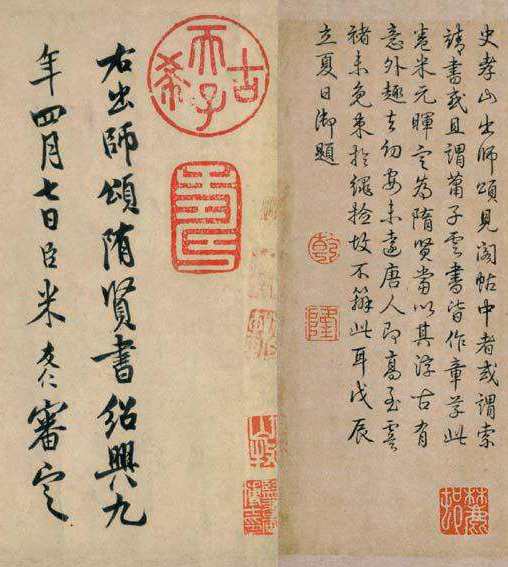 史孝山出師頌見閣帖中者或謂索
靖書或且謂蕭子雲書皆作章草此
卷米元暉定為隋賢當以其淳古有
意外趣去幼安未遠唐人即高至虞
褚未免束於繩撿故不辦此耳戊辰
立夏日御題
乾
隆
古希天子
右出師頌隋賢書紹興九
年四月七日臣米友仁審定